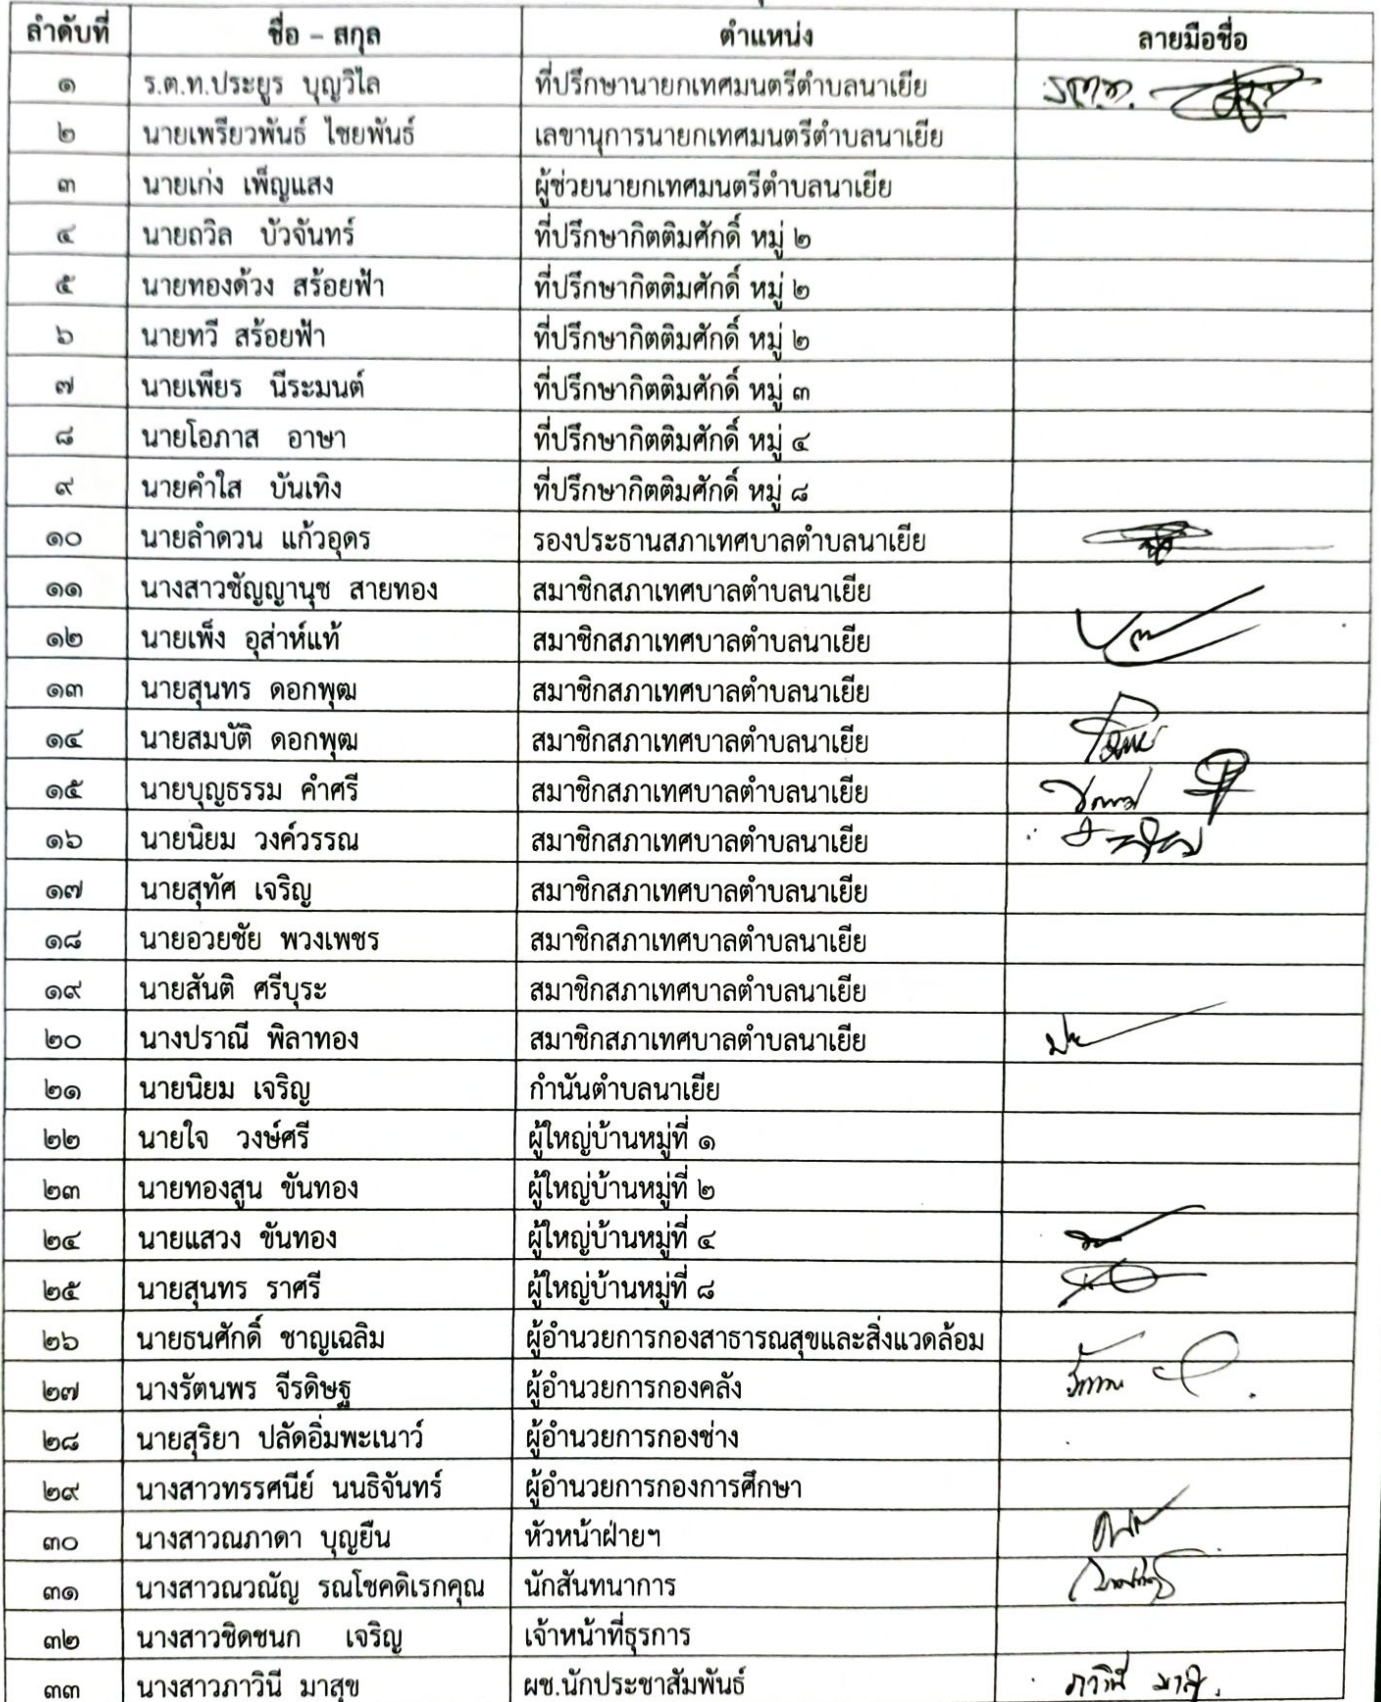 ลำดับที่ ชื่อ – สกุล ตำแหน่ง ลายมือชื่อ
๑ ร.ต.ท.ประยูร บุญวิไล ที่ปรึกษานายกเทศมนตรีตำบลนาเยีย ร.ต.ท.
๒ นายเพรียวพันธ์ ไชยพันธ์ เลขานุการนายกเทศมนตรีตำบลนาเยีย
๓ นายเก่ง เพ็ญแสง ผู้ช่วยนายกเทศมนตรีตำบลนาเยีย
๔ นายถวิล บัวจันทร์ ที่ปรึกษากิตติมศักดิ์ หมู่ ๒
๕ นายทองด้วง สร้อยฟ้า ที่ปรึกษากิตติมศักดิ์ หมู่ ๒
๖ นายทวี สร้อยฟ้า ที่ปรึกษากิตติมศักดิ์ หมู่ ๒
๗ นายเพียร นีระมนต์ ที่ปรึกษากิตติมศักดิ์ หมู่ ๓
๘ นายโอภาส อาษา ที่ปรึกษากิตติมศักดิ์ หมู่ ๔
๙ นายคำใส บันเทิง ที่ปรึกษากิตติมศักดิ์ หมู่ ๘
๑๐ นายลำดวน แก้วอุดร รองประธานสภาเทศบาลตำบลนาเยีย
๑๑ นางสาวชัญญานุช สายทอง สมาชิกสภาเทศบาลตำบลนาเยีย
๑๒ นายเพ็ง อุส่าห์แท้ สมาชิกสภาเทศบาลตำบลนาเยีย
๑๓ นายสุนทร ดอกพุฒ สมาชิกสภาเทศบาลตำบลนาเยีย
๑๔ นายสมบัติ ดอกพุฒ สมาชิกสภาเทศบาลตำบลนาเยีย
๑๕ นายบุญธรรม คำศรี สมาชิกสภาเทศบาลตำบลนาเยีย
๑๖ นายนิยม วงค์วรรณ สมาชิกสภาเทศบาลตำบลนาเยีย
๑๗ นายสุทัศ เจริญ สมาชิกสภาเทศบาลตำบลนาเยีย
๑๘ นายอวยชัย พวงเพชร สมาชิกสภาเทศบาลตำบลนาเยีย
๑๙ นายสันติ ศรีบุระ สมาชิกสภาเทศบาลตำบลนาเยีย
๒๐ นางปราณี พิลาทอง สมาชิกสภาเทศบาลตำบลนาเยีย
๒๑ นายนิยม เจริญ กำนันตำบลนาเยีย
๒๒ นายใจ วงษ์ศรี ผู้ใหญ่บ้านหมู่ที่ ๑
๒๓ นายทองสูน ขันทอง ผู้ใหญ่บ้านหมู่ที่ ๒
๒๔ นายแสวง ขันทอง ผู้ใหญ่บ้านหมู่ที่ ๔
๒๕ นายสุนทร ราศรี ผู้ใหญ่บ้านหมู่ที่ ๘
๒๖ นายธนศักดิ์ ชาญเฉลิม ผู้อำนวยการกองสาธารณสุขและสิ่งแวดล้อม
๒๗ นางรัตนพร จีรดิษฐ ผู้อำนวยการกองคลัง
๒๘ นายสุริยา ปลัดอิ่มพะเนาว์ ผู้อำนวยการกองช่าง
๒๙ นางสาวทรรศนีย์ นนธิจันทร์ ผู้อำนวยการกองการศึกษา
๓๐ นางสาวณภาดา บุญยืน หัวหน้าฝ่ายฯ
๓๑ นางสาวณวณัญ รณโชคดิเรกคุณ นักสันทนาการ
๓๒ นางสาวชิดชนก เจริญ เจ้าหน้าที่ธุรการ
๓๓ นางสาวภาวินี มาสุข ผช.นักประชาสัมพันธ์ ภาวินี มาสุข